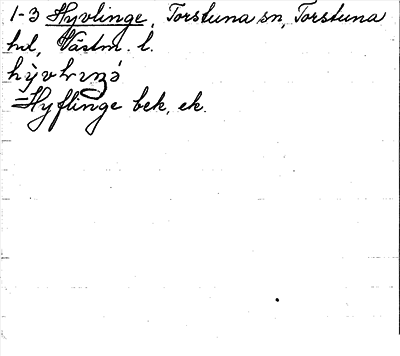 1-3 Hyvlinge, Torstuna sn, Torstuna
hd, Västm. l.
Hyflinge bek. ek.